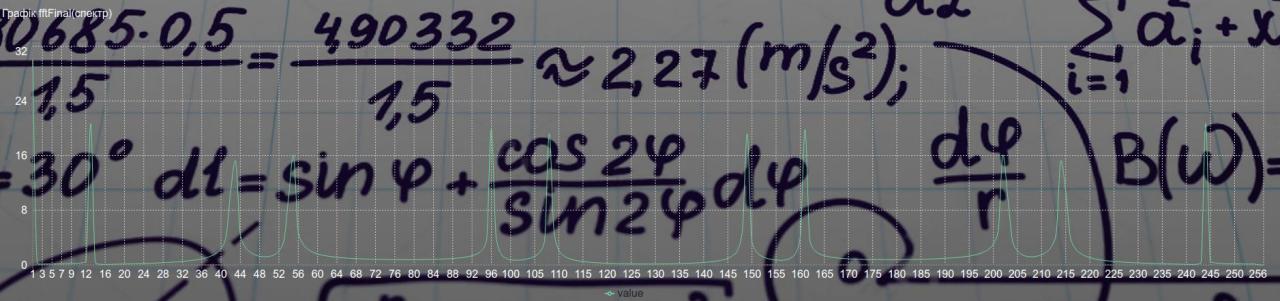 Графік fftFinal(спектр)
0685·0,5 / 1,5 = 490332 / 1,5 ≈ 2,27 (m/s²);
Σ i=1 a i + x
= 30° dl = sin φ + cos 2φ / sin 2φ dφ
dφ / r
B(W) =
32
24
16
8
0
1 3 5 7 9 12 16 20 24 28 32 36 40 44 48 52 56 60 64 68 72 76 80 84 88 92 96 100 105 110 115 120 125 130 135 140 145 150 155 160 165 170 175 180 185 190 195 200 205 210 215 220 225 230 235 240 245 250 256
value